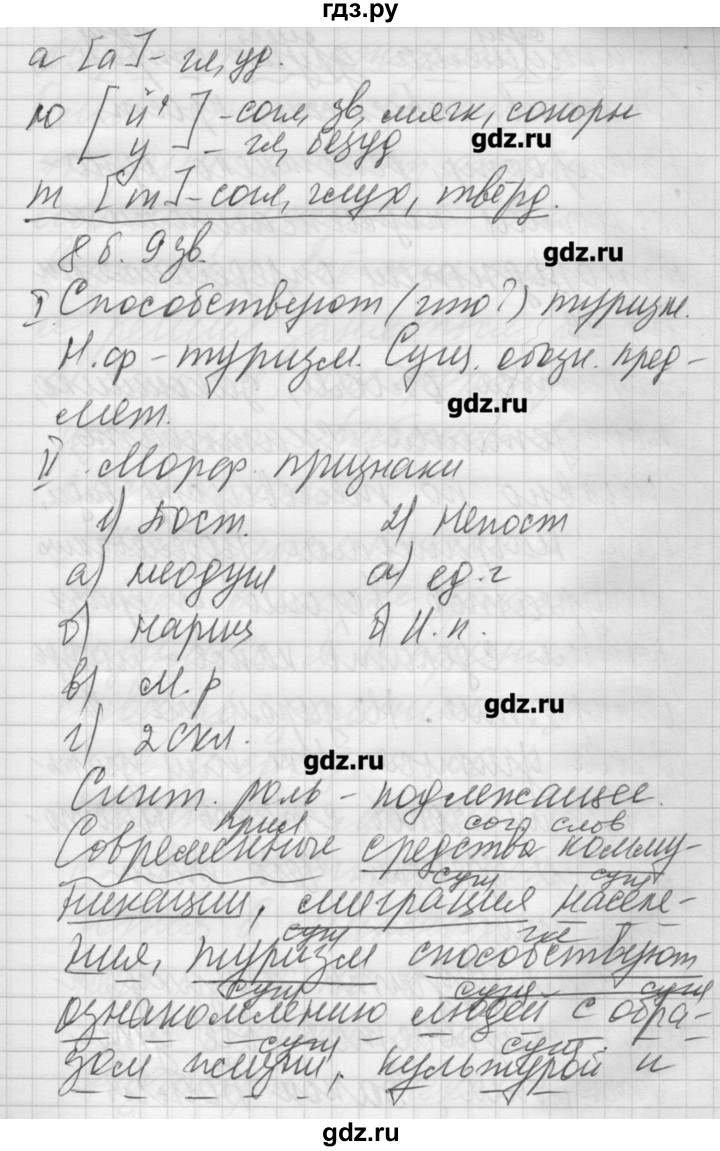 гдз.ру
а [а] - гл, уд.
ю [й' - согл, зв, мягк, сонорн
у] - гл, безуд
gdz.ru
т [т] - согл, глух, тверд.
8 б. 9 зв.
gdz.ru
I Способствуют (что?) туризм.
Н.ф - туризм. Сущ. обозн. пред-
gdz.ru
мет.
II. Морф. признаки
1) Пост. 2) Непост
а) неодуш а) ед.ч
б) нариц б) И.п.
в) м.р
gdz.ru
г) 2 скл.
gdz.ru
Синт. роль - подлежащее.
прил сущ слов
Современные средства комму-
сущ сущ
никации, миграция населе-
сущ гл
ния, туризм способствуют
сущ сущ сущ
ознакомлению людей с обра-
сущ сущ.
зом жизни, культурой и
gdz.ru